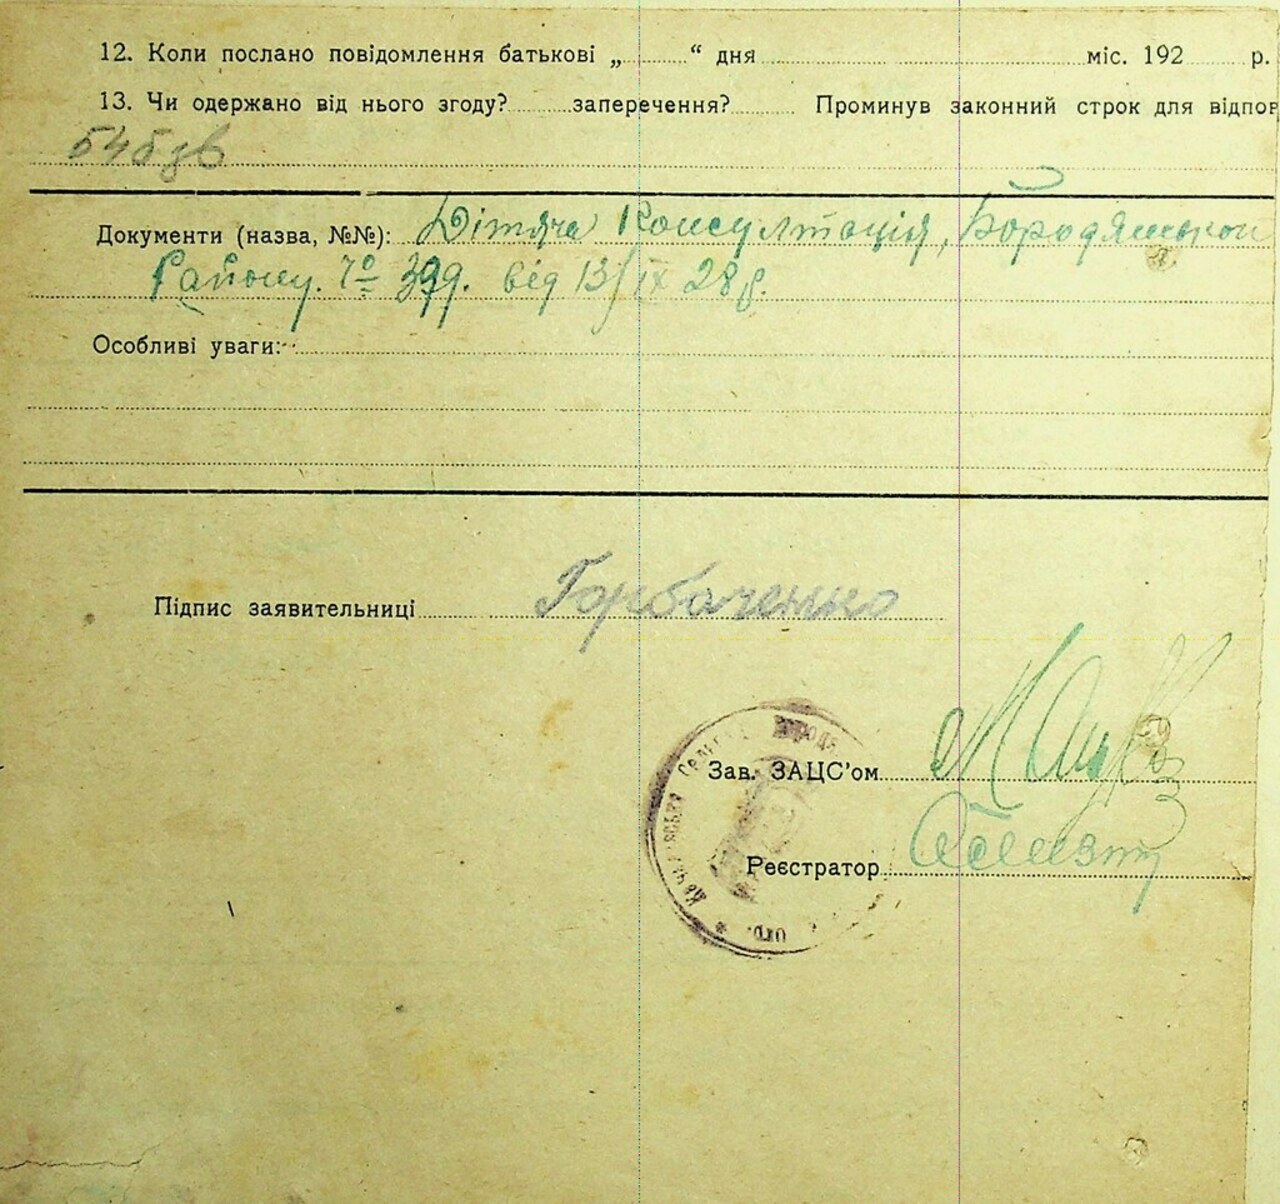 12. Коли послано повідомлення батькові „............“ дня .................... міс. 192...... р.
13. Чи одержано від нього згоду?.........заперечення?......... Проминув законний строк для відпов
Документи (назва, №№): Дітяча Консултація, Бородянської
Району. № 399. від 13/ІХ 28 р.
Особливі уваги:
Підпис заявительниці Горбаченко
Зав. ЗАЦС'ом
Реєстратор